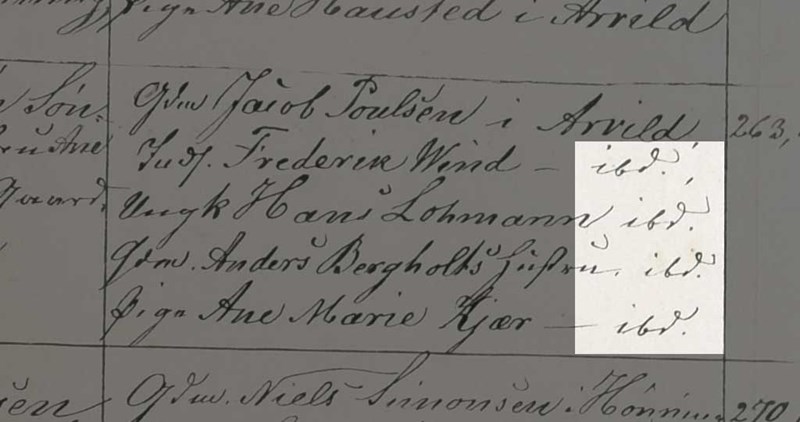 Pige Ane Hausted i Arrild
Gdm Jacob Poulsen i Arrild, 263,
Søn. Inds. Frederik Wind — ibd.,
Ane Ungk Hans Lohmann ibd.
Gaard. Gdm. Anders Bergholts Hustru. ibd.
Pige Ane Marie Kjær — ibd.
sen Gdm. Niels Simonsen i 270